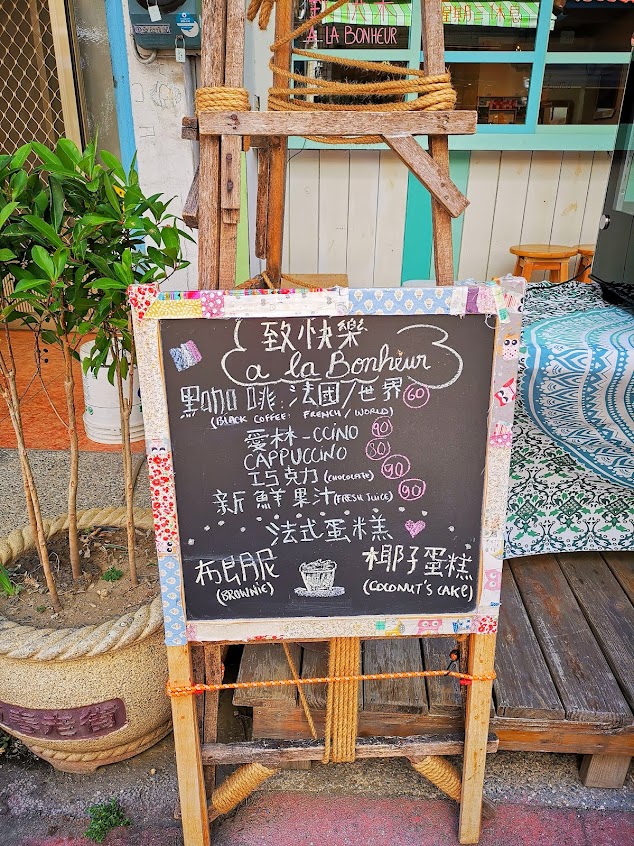 À LA BONHEUR
致快樂
a la Bonheur
黑咖啡:法國/世界 60
(BLACK COFFEE: FRENCH / WORLD)
愛林-CCINO 90
CAPPUCCINO 80
巧克力 (CHOCOLATE) 90
新鮮果汁 (FRESH JUICE) 90
法式蛋糕
布朗服 椰子蛋糕
(BROWNIE) (COCONUT'S CAKE)